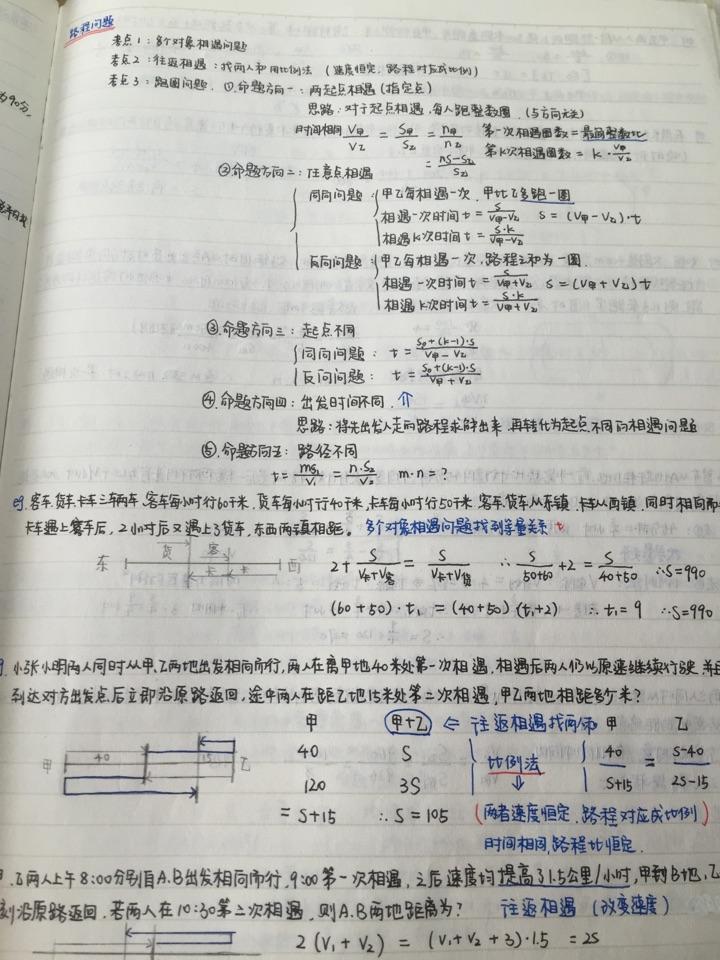 路程问题
考点1：多个对象相遇问题
考点2：往返相遇：找两人和用比例法（速度恒定，路程对应成比例）
考点3：跑圈问题. ①.命题方向一：两起点相遇(指定点)
思路：对于起点相遇,每人跑整数圈.（与方向无关）
时间相同 V甲/V乙 = S甲/S乙 = n甲/n乙 第一次相遇圈数=最简整数比
= nS-S乙/S乙 第K次相遇圈数= K·V甲/V乙
②命题方向二：任意点相遇
同向问题：甲乙每相遇一次,甲比乙多跑一圈
相遇一次时间t= S/V甲-V乙 S=(V甲-V乙)·t
相遇K次时间t= S·K/V甲-V乙
反向问题：甲乙每相遇一次,路程之和为一圈.
相遇一次时间t= S/V甲+V乙 S=(V甲+V乙)t
相遇K次时间t= S·K/V甲+V乙
③.命题方向三：起点不同
同向问题：t= S0+(K-1)·S/V甲-V乙
反向问题：t= S0+(K-1)·S/V甲+V乙
④.命题方向四：出发时间不同.
思路：将先出发人走的路程求解出来,再转化为起点不同的相遇问题
⑤.命题方向五：路径不同
t= mS1/V1 = n·S2/V2 m·n=?
eg.客车.货车.卡车三辆车,客车每小时行60千米,货车每小时行40千米,卡车每小时行50千米.客车.货车从东镇.卡车从西镇,同时相向而
卡车遇上客车后,2小时后又遇上了货车,东西两镇相距。 多个对象相遇问题找到等量关系 t
东 货 客 卡 卡 西 2+ S/V卡+V客 = S/V卡+V货 ∴ S/50+60 +2= S/40+50 ∴S=990
(60+50)·t1=(40+50)(t1+2) ∴t1=9 ∴S=990
小张小明两人同时从甲.乙两地出发相向而行,两人在离甲地40米处第一次相遇,相遇后两人仍以原速继续行驶,并且
到达对方出发点后立即沿原路返回,途中两人在距乙地15米处第二次相遇,甲乙两地相距多少米?
甲 甲+乙 ⇐ 往返相遇找两和 甲 乙
甲 40 15 乙 40 S 比例法 40/S+15 = S-40/2S-15
120 3S
=S+15 ∴S=105 （两者速度恒定.路程对应成比例）
时间相同,路程比恒定.
甲.乙两人上午8:00分别自A.B出发相向而行,9:00第一次相遇,之后速度均提高了1.5公里/小时,甲到B地,乙
刻沿原路返回.若两人在10:30第二次相遇,则A.B两地距离为? 往返相遇（改变速度）
2(V1+V2) = (V1+V2+3)·1.5 = 2S